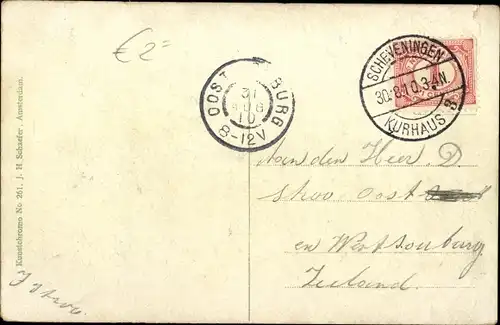 € 2=
SCHEVENINGEN
30.8.10.3-4N
KURHAUS 3
OOST BURG
31
AUG
10
8-12V
Aan den Heer D.
oost
en West souburg
Zeeland.
Kunstchromo No 261, J. H. Schaefer, Amsterdam.